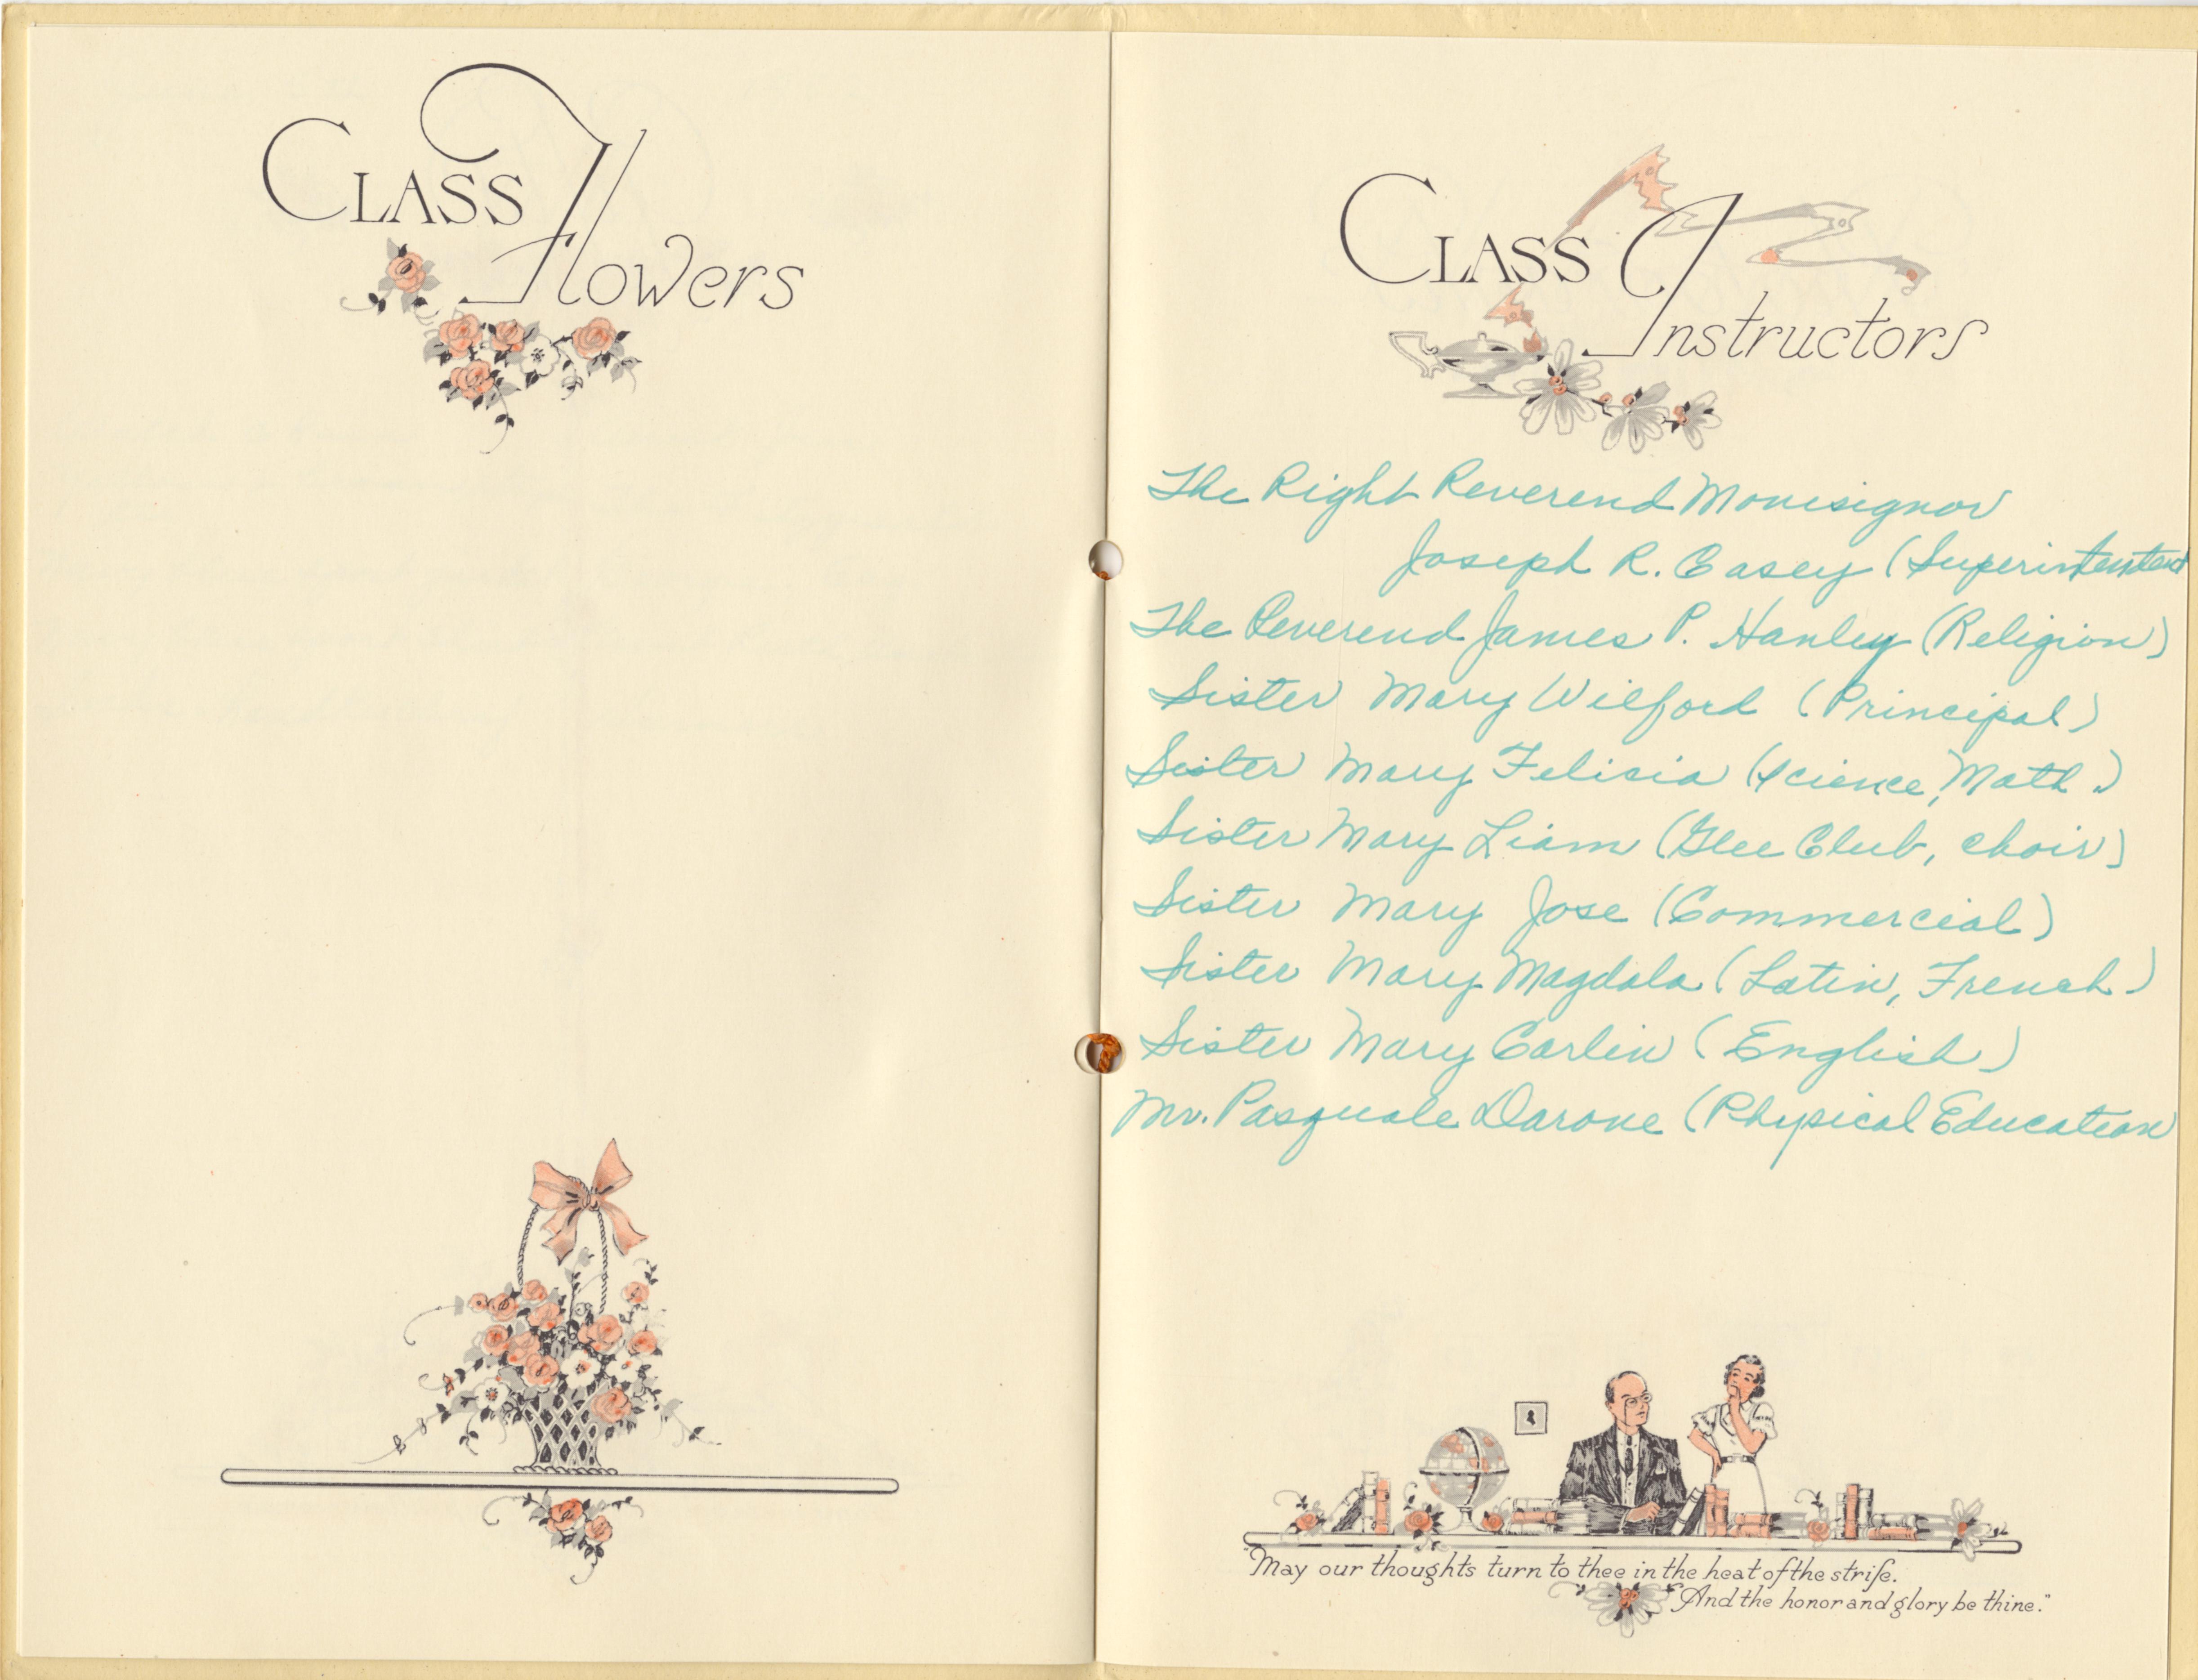 Class Flowers
Class Instructors
The Right Reverend Monsignor
Joseph R. Casey (Superintentent
The Reverend James P. Hanley (Religion)
Sister Mary Wilford (Principal)
Sister Mary Felicia (science, Math.)
Sister Mary Liam (Glee Club, choir)
Sister Mary Jose (Commercial)
Sister Mary Magdala (Latin, French)
Sister Mary Carlin (English)
Mr. Pasquale Darone (Physical Education
"May our thoughts turn to thee in the heat of the strife.
And the honor and glory be thine."